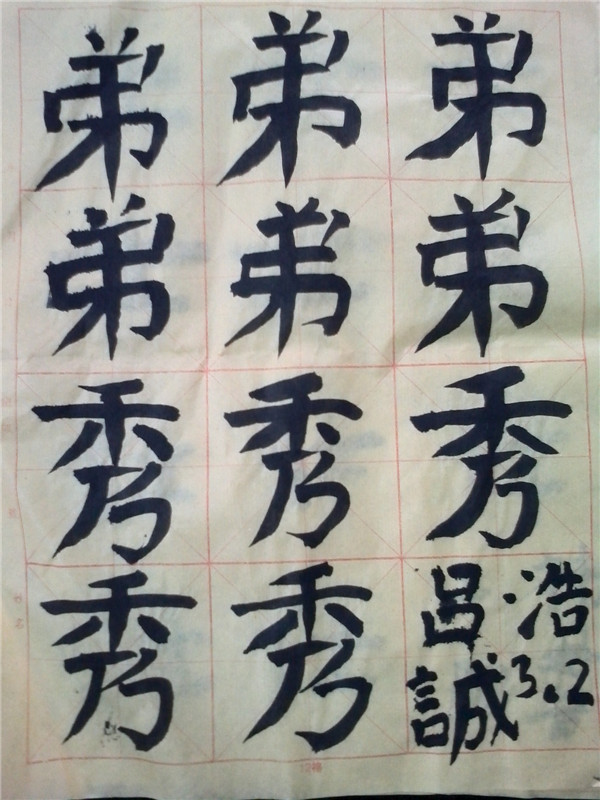 弟弟弟
弟弟弟
秀秀秀
秀秀
呂浩
誠3.2